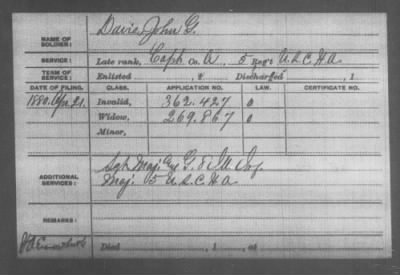 NAME OF SOLDIER: Davis, John G.
SERVICE: Late rank, Capt. Co. A, 5 Reg't U.S.C.H.A.
TERM OF SERVICE: Enlisted , 1 Discharged , 1
DATE OF FILING. CLASS. APPLICATION NO. LAW. CERTIFICATE NO.
1880. Apr. 21. Invalid, 362.427 0
Widow, 269.867 0
Minor,
ADDITIONAL SERVICES: Sgt. Maj. G. & Ill. Inf.
Maj. 5 U.S.C.H.A.
REMARKS:
Died , 1 , at